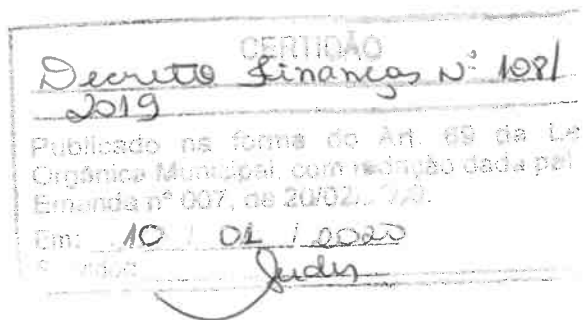 CERTIDÃO
Decreto Finanças Nº 108/
2019
Publicado na forma do Art. 69 da Le
Orgânica Municipal, com redação dada pel
Emenda nº 007, de 20/02/
Em: 10 / 01 / 2020